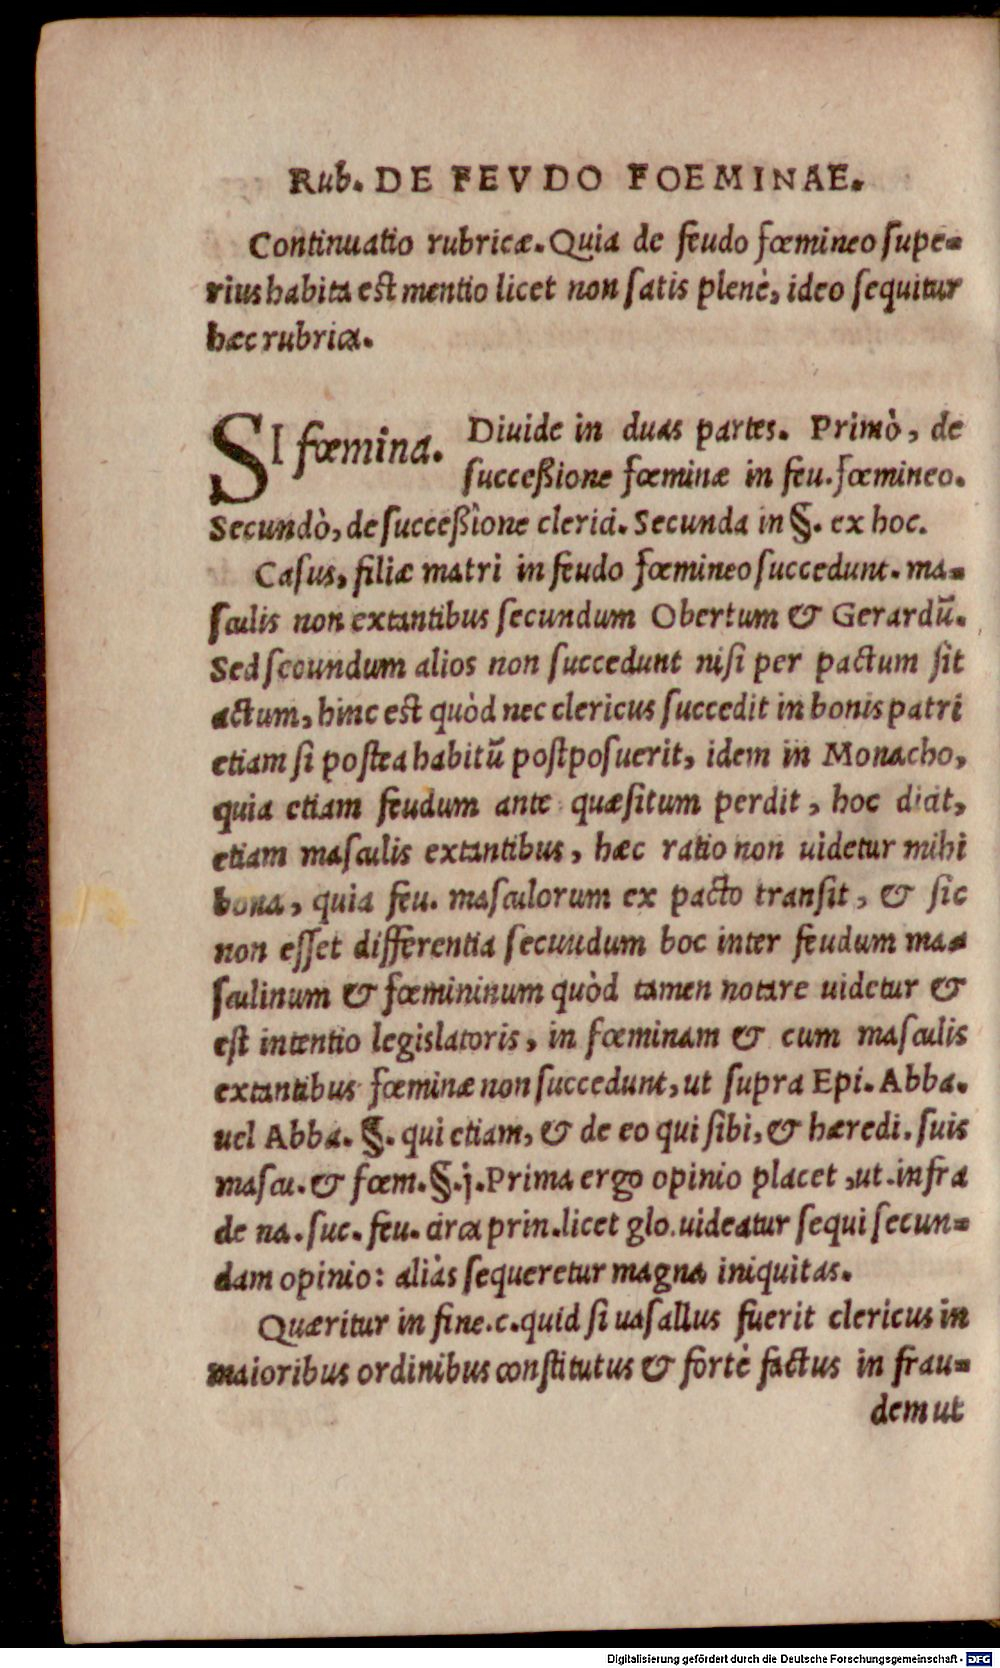 Rub. DE FEVDO FOEMINAE.
Continuatio rubricæ. Quia de feudo fœmineo supe-
rius habita est mentio licet non satis plenè, ideo sequitur
hæc rubrica.
SI fœmina. Diuide in duas partes. Primò, de
succeßione fœminæ in feu. fœmineo.
Secundò, de succeßione clerici. Secunda in §. ex hoc.
Casus, filiæ matri in feudo fœmineo succedunt. ma-
sculis non extantibus secundum Obertum & Gerardū.
Sed secundum alios non succedunt nisi per pactum sit
actum, hinc est quòd nec clericus succedit in bonis patri
etiam si postea habitū postposuerit, idem in Monacho,
quia etiam feudum ante quæsitum perdit, hoc dicit,
etiam masculis extantibus, hæc ratio non uidetur mihi
bona, quia feu. masculorum ex pacto transit, & sic
non esset differentia secundum hoc inter feudum ma-
sculinum & fœmininum quòd tamen notare uidetur &
est intentio legislatoris, in fœminam & cum masculis
extantibus fœminæ non succedunt, ut supra Epi. Abba.
uel Abba. §. qui etiam, & de eo qui sibi, & hæredi. suis
mascu. & fœm. §. j. Prima ergo opinio placet, ut. infra
de na. suc. feu. circa prin. licet glo. uideatur sequi secun-
dam opinio: aliàs sequeretur magna iniquitas.
Quæritur in fine. c. quid si uasallus fuerit clericus in
maioribus ordinibus constitutus & fortè factus in frau-
dem ut
Digitalisierung gefördert durch die Deutsche Forschungsgemeinschaft - DFG